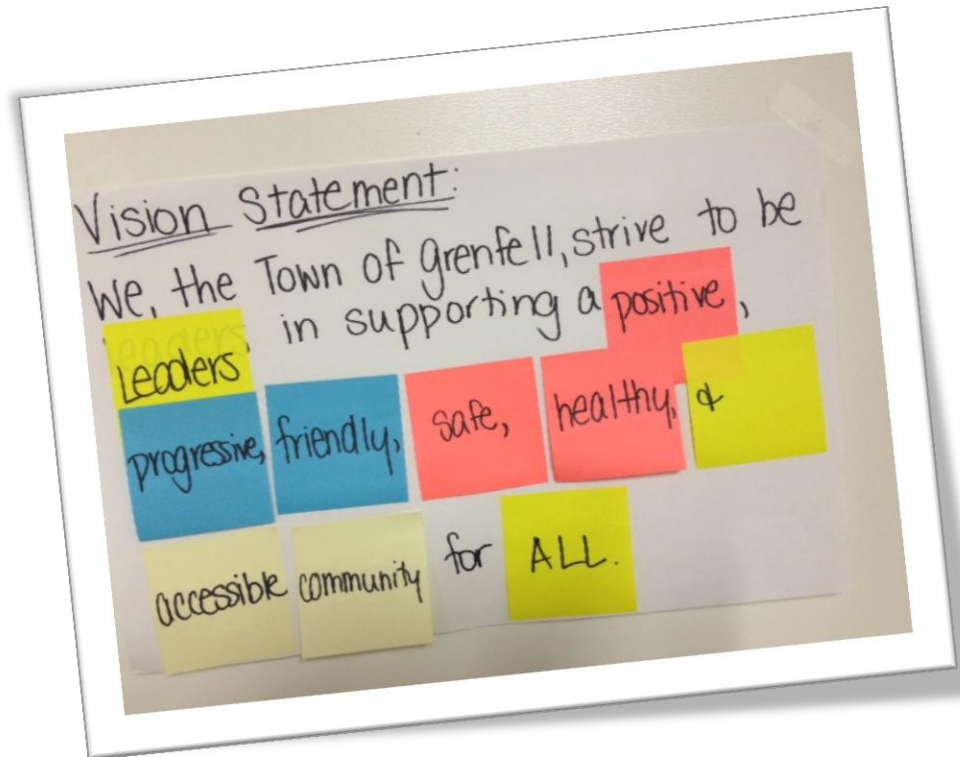 Vision Statement:
We, the Town of Grenfell, strive to be
Leaders in supporting a positive,
progressive, friendly, safe, healthy, &
accessible community for ALL.